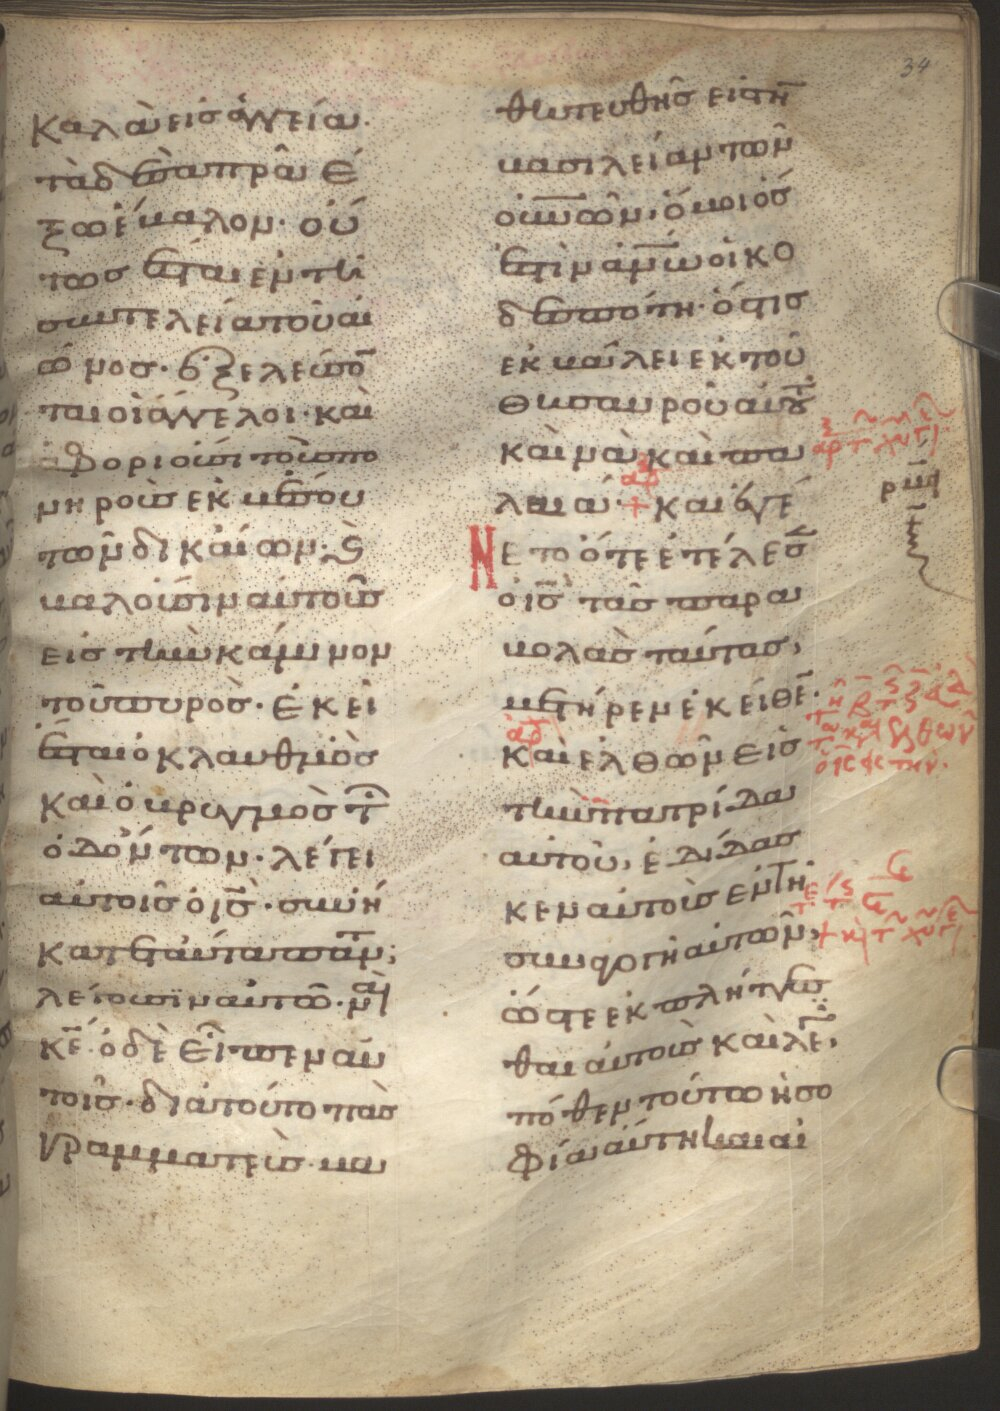 34
καλὰ εἰς ἀγγεῖα·
τὰ δὲ σαπρὰ ἔ
ξω ἔβαλον· οὕ
τως ἔσται ἐν τῆ
συντελεία τοῦ αἰ
ῶνος· ἐξελεύσο̅
ται οἱ ἄγγελοι· καὶ
ἀφοριοῦσι τοὺς πο
νηροὺς ἐκ μέσου
τῶν δικαίων· ϗ̀
βαλοῦσιν αὐτοὺς
εἰς τὴν κάμινον
τοῦ πυρὸς· ἐκεῖ
ἔσται ὁ κλαυθμὸς
καὶ ὁ βρυγμὸς τῶ̅
ὀδόντων· λέγει
αὐτοῖς ὁ ι̅ς̅· συνή
κατε ταῦτα πάντα;
λέγουσιν αὐτῶ· ναὶ
κ̅ε̅· ὁ δὲ εἶπεν αὐ
τοῖς· διὰ τοῦτο πᾶς
γραμματεὺς μα
θητευθεὶς εἰς τὴ̅
βασιλείαν τῶν
ο̅υ̅ν̅ω̅ν, ὅμοιός
ἐστιν α̅ν̅ω̅ οἰκο
δεσπότη· ὅστις
ἐκβάλλει ἐκ τοῦ
θησαυροῦ αὐτοῦ
καὶ νὰ καὶ πα
λαιά· + καὶ ἐγέ
Νετο ὅτε ἐτέλεσε̅
ὁ ι̅ς̅ τὰς παρα
βολὰς ταύτας,
μετῆρεν ἐκεῖθε̅·
καὶ ἐλθὼν εἰς
τὴν πατρίδα
αὐτοῦ, ἐδίδασ
κεν αὐτοὺς ἐν τῆ
συναγωγῆ αὐτῶν,
ὥστε ἐκπλήττεσ
θαι αὐτοὺς καὶ λέγ̅,
πόθεν τούτω ἡ σο
φία αὕτη καὶ αἱ